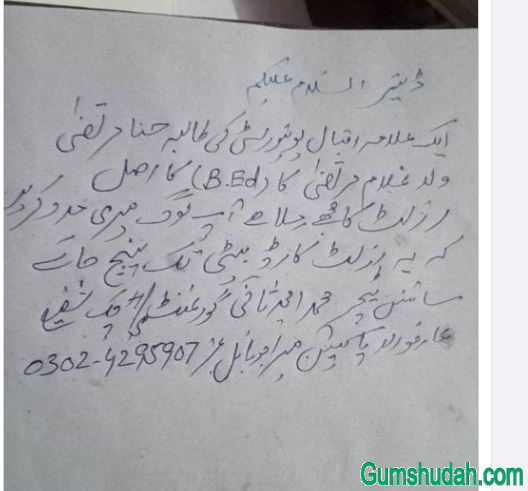 ڈیئر السلام علیکم
ایک علامہ اقبال یونیورسٹی کی طالبہ حنا مرتضیٰ
ولد غلام مرتضیٰ کا (B.Ed) کا اصل
رزلٹ کا مجھے ملا ہے آپ لوگ میری مدد کردیں
کہ یہ رزلٹ کارڈ بیٹی تک پہنچ جائے
سائنس ٹیچر محمد امجد ثاقی گورنمنٹ چک شفیع
عارفوالہ پاکپتن میرا موبائل نمبر 0302-4295907
Gumshudah.com